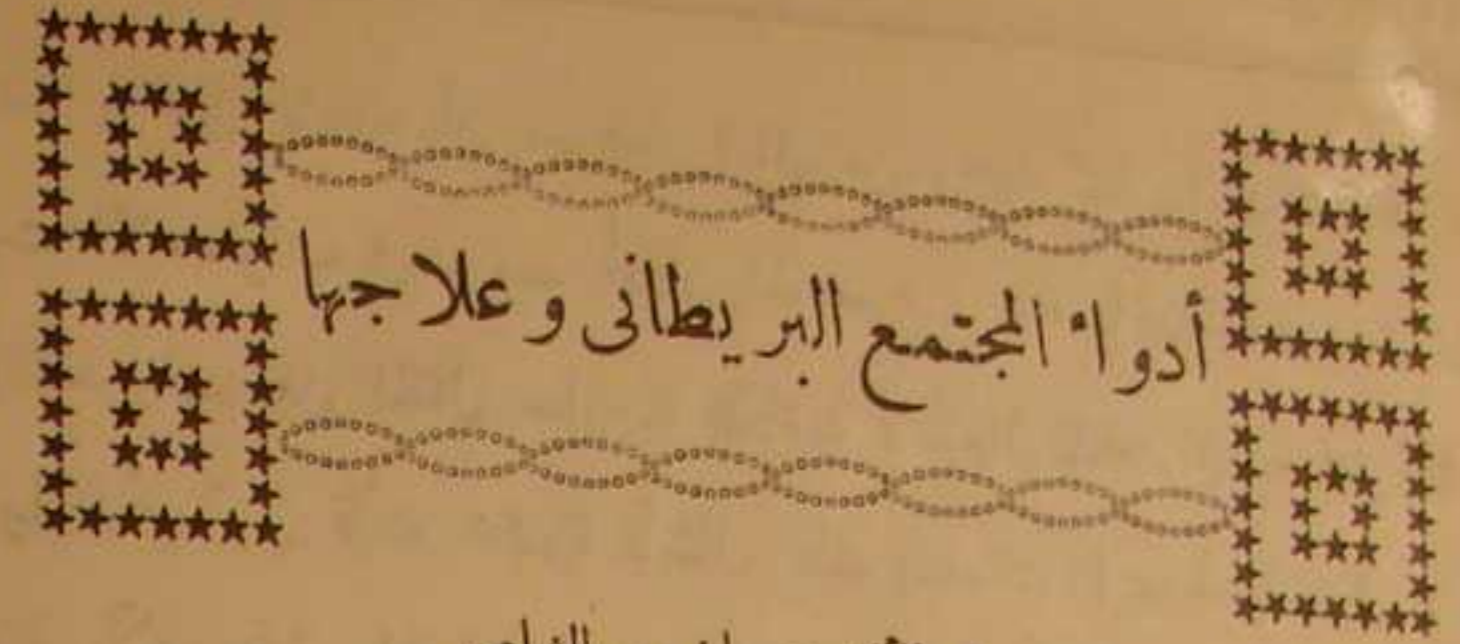 أدواء المجتمع البريطانى وعلاجها